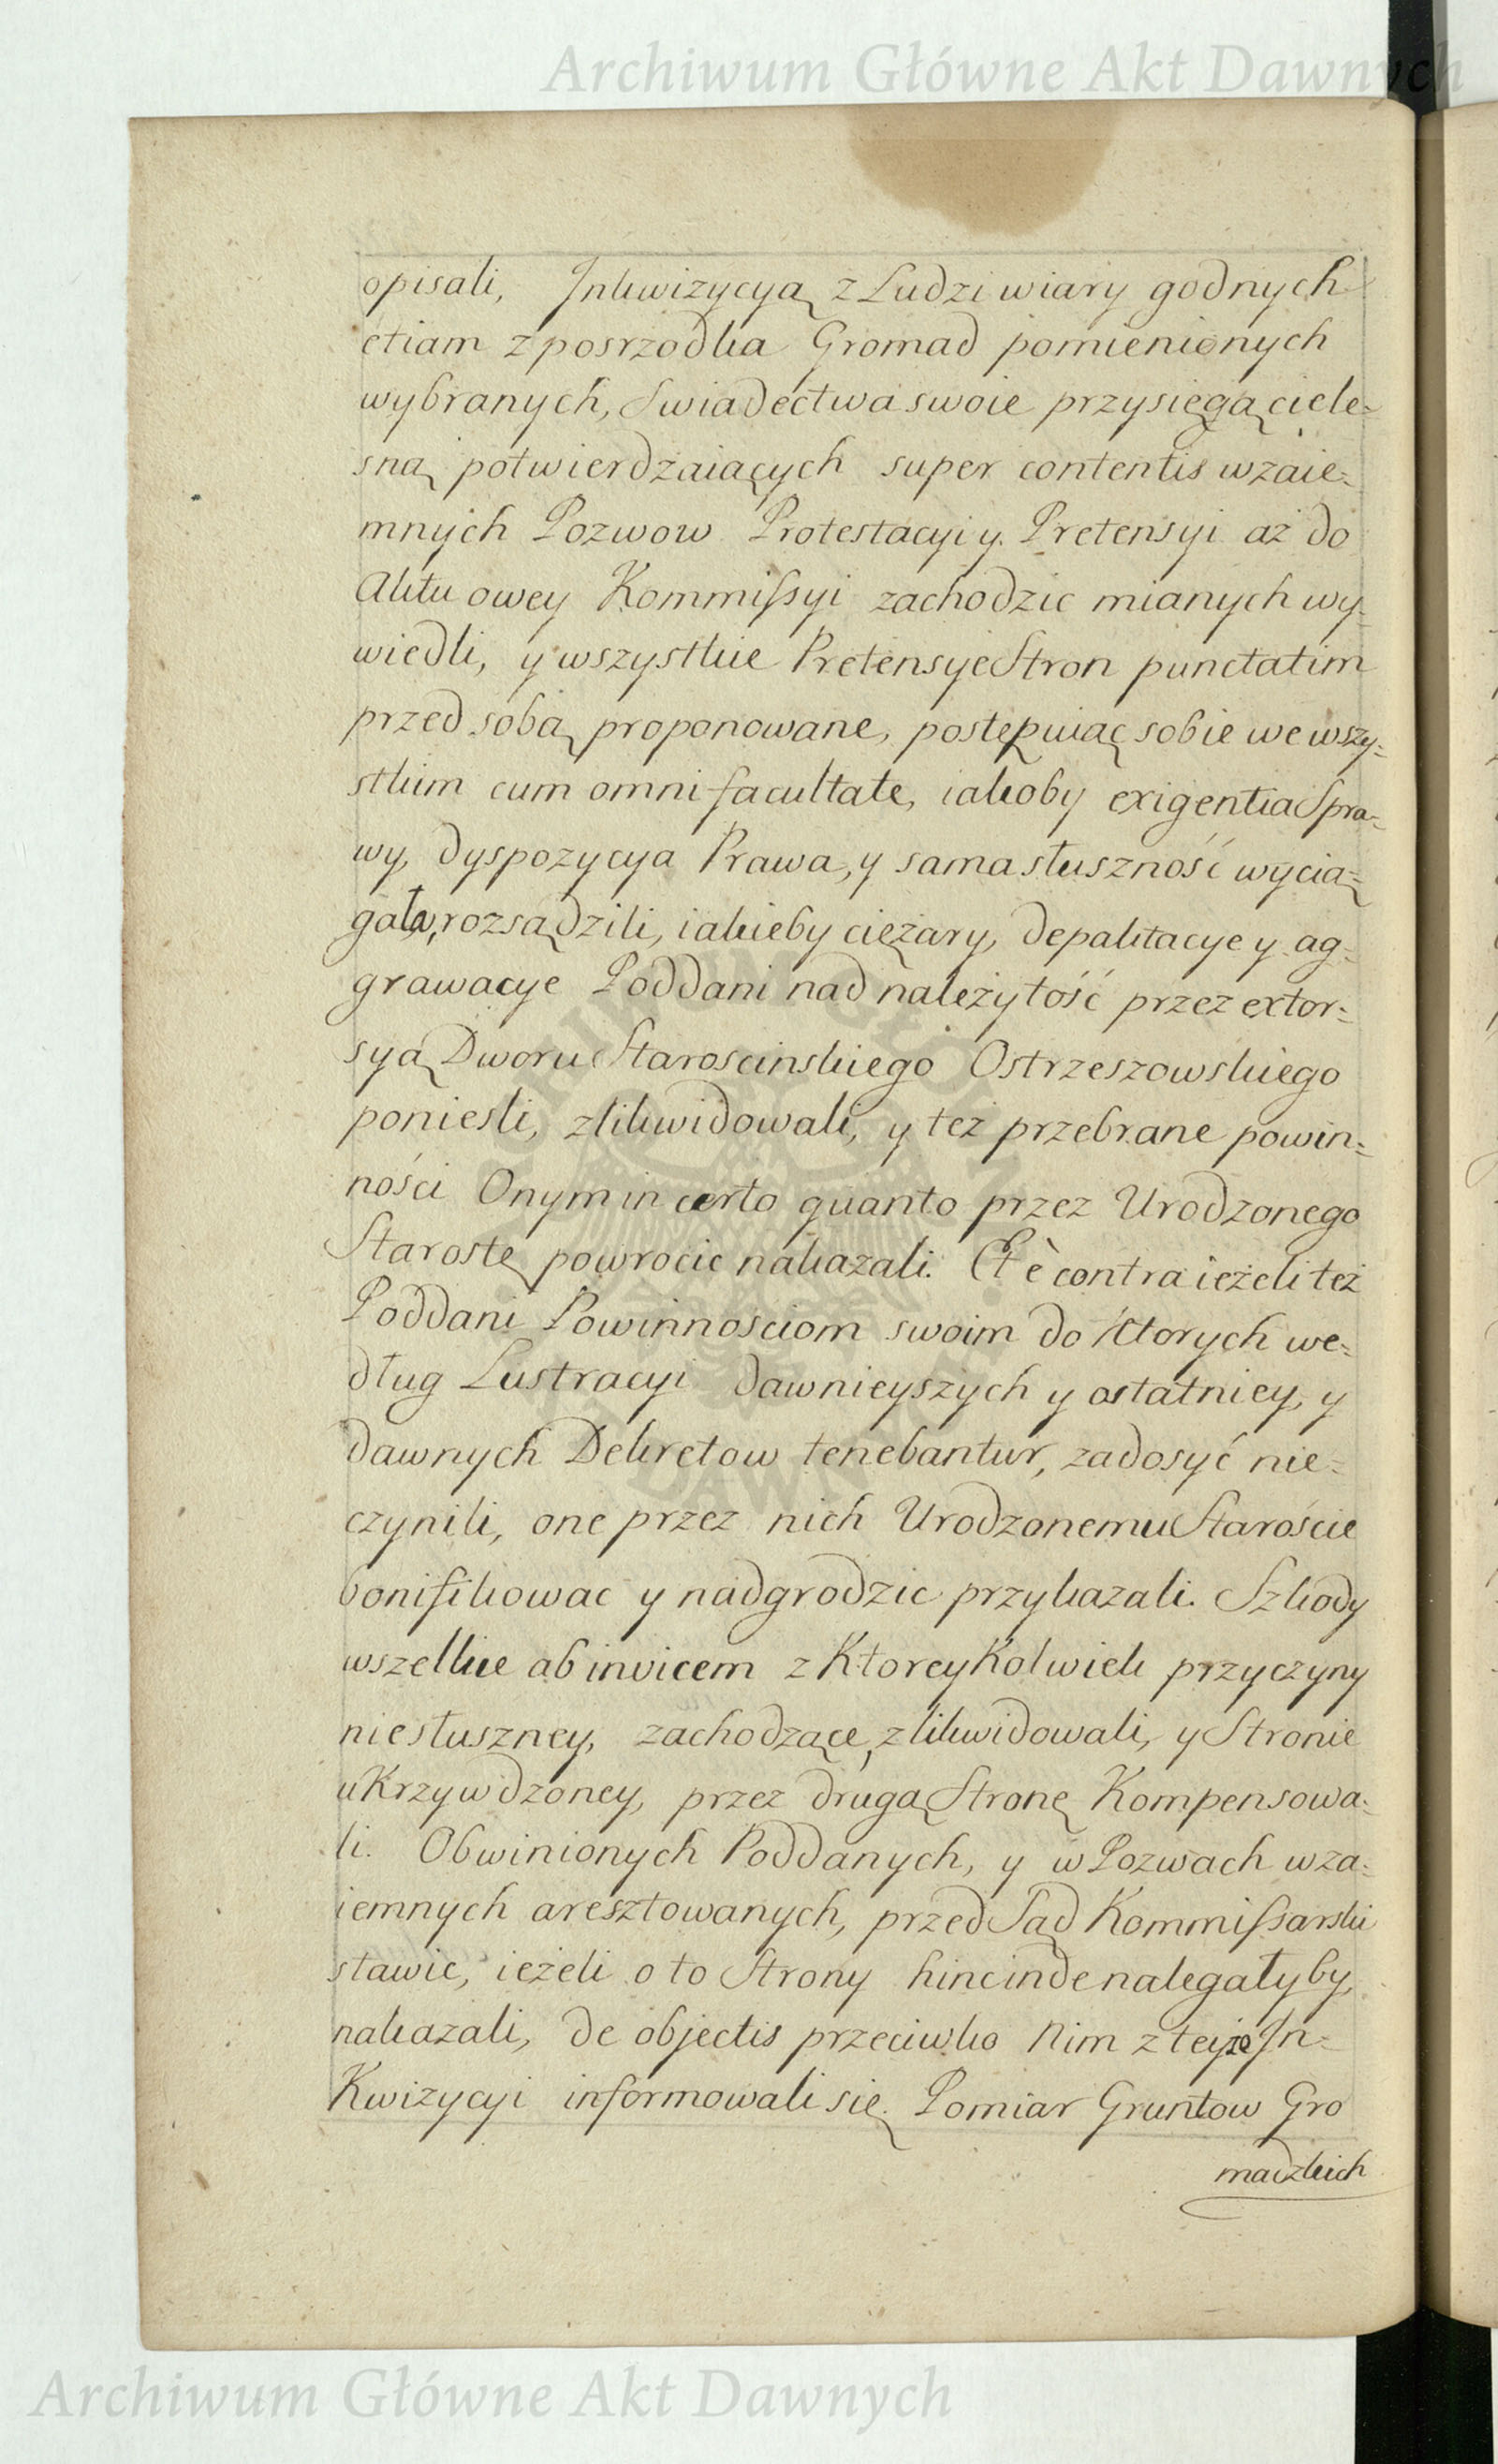 Archiwum Główne Akt Dawnych
opisali, Inkwizycyą z Ludzi wiary godnych
etiam z posrzodka Gromad pomienionych
wybranych, Swiadectwa swoie przysięgą ciele=
sną potwierdzaiących super contentis wzaie=
mnych Pozwow Protestacyi y Pretensyi aż do
Aktu owey Kommissyi zachodzic mianych wy=
wiedli, y wszystkie Pretensye Stron punctatim
przed sobą proponowane, postępuiąc sobie we wszy=
stkim cum omni facultate, iakoby exigentia Spra=
wy, dyspozycya Prawa, y sama słuszność wycią=
gała, rozsądzili, iakieby cięzary, depaktacye y ag=
grawacye Poddani nad należytość przez extor=
syą Dworu Staroscinskiego Ostrzeszowskiego
poniesli, zlikwidowali, y też przebrane powin=
ności Onym in certo quanto przez Urodzonego
Starostę powrocic nakazali. Et è contra ieżeli też
Poddani Powinnosciom swoim do Ktorych we=
dług Lustracyi dawnieyszych y ostatniey, y
dawnych Dekretow tenebantur, zadosyć nie=
czynili, one przez nich Urodzonemu Staroście
bonifikowac y nadgrodzic przykazali. Szkody
wszelkie ab invicem z Ktoreykolwiek przyczyny
niesłuszney, zachodzące, zlikwidowali, y Stronie
uKrzywdzoney, przez drugą Stronę Kompensowa=
li. Obwinionych Poddanych, y w Pozwach wza=
iemnych aresztowanych, przed Sąd Kommissarski
stawic, ieżeli o to Strony hincinde nalegałyby,
nakazali, de objectis przeciwko Nim z teyże In=
Kwizycyi informowali się. Pomiar Gruntow Gro
madzkich
Archiwum Główne Akt Dawnych